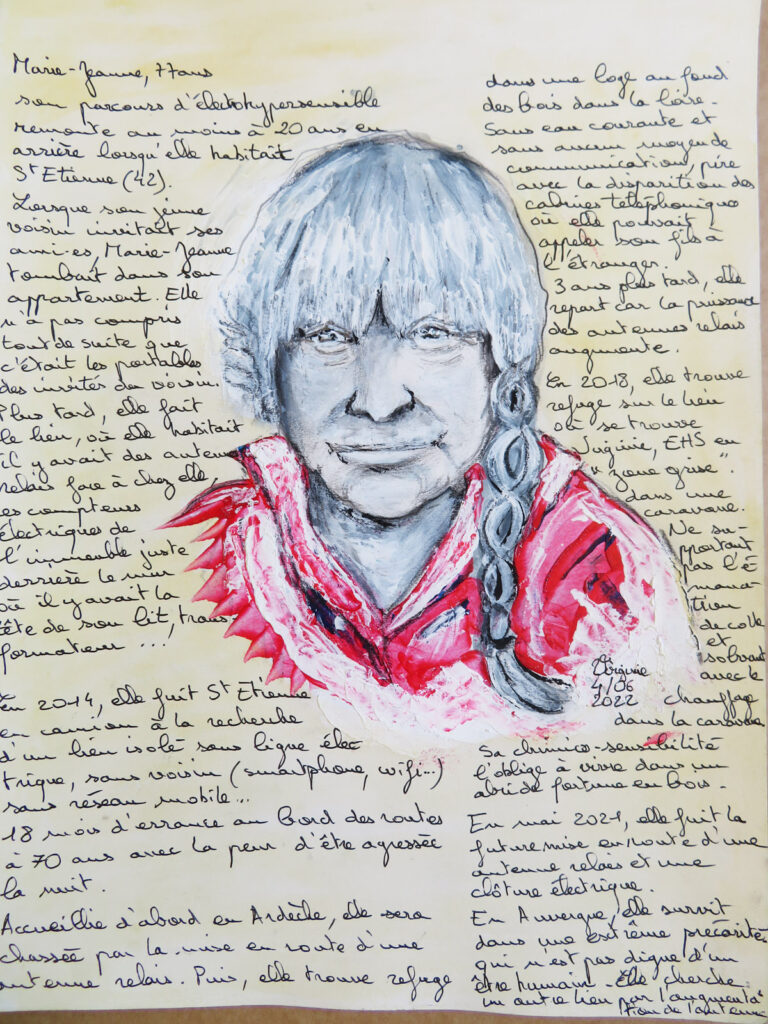 Marie-Jeanne, 77ans
son parcours d'électrohypersensible
remonte au moins à 20 ans en
arrière lorsqu'elle habitait
St Etienne (42).
Lorsque son jeune
voisin invitait ses
ami-es, Marie-Jeanne
tombait dans son
appartement. Elle
n'a pas compris
tout de suite que
c'était les portables
des invités du voisin.
Plus tard, elle fait
le lien, où elle habitait
il y avait des antennes
relais face à chez elle,
les compteurs
électriques de
l'immeuble juste
derrière le mur
où il y avait la
tête de son lit, trans-
formateur ...,
En 2014, elle fuit St Etienne
en camion à la recherche
d'un lieu isolé sans ligne élec
trique, sans voisin (smartphone, wifi...)
sans réseau mobile...
18 mois d'errance au bord des routes
à 70 ans avec la peur d'être agressée
la nuit.
Accueillie d'abord en Ardèche, elle sera
chassée par la mise en route d'une
antenne relais. Puis, elle trouve refuge
dans une loge au fond
des bois dans la Loire.
Sans eau courante et
sans aucun moyen de
communication, pire
avec la disparition des
cabines téléphoniques
où elle pouvait
appeler son fils à
l'étranger.
3 ans plus tard, elle
repart car la puissance
des antennes relais
augmente.
En 2018, elle trouve
refuge sur le lieu
où se trouve
Virginie, EHS en
"zone grise".
dans une
caravane.
Ne su-
pportant
pas l'é
mana-
tion
de colle
et
solvant
avec le
chauffage
dans la caravane
Sa chimico-sensibilité
l'oblige à vivre dans un
abri de fortune en bois.
En mai 2021, elle fuit la
future mise en route d'une
antenne relais et une
clôture électrique.
En Auvergne, elle survit
dans une extrême précarité
qui n'est pas digne d'un
être humain. Elle cherche
un autre lieu par l'augmenta
tion de l'antenne
Virginie
4/06
2022